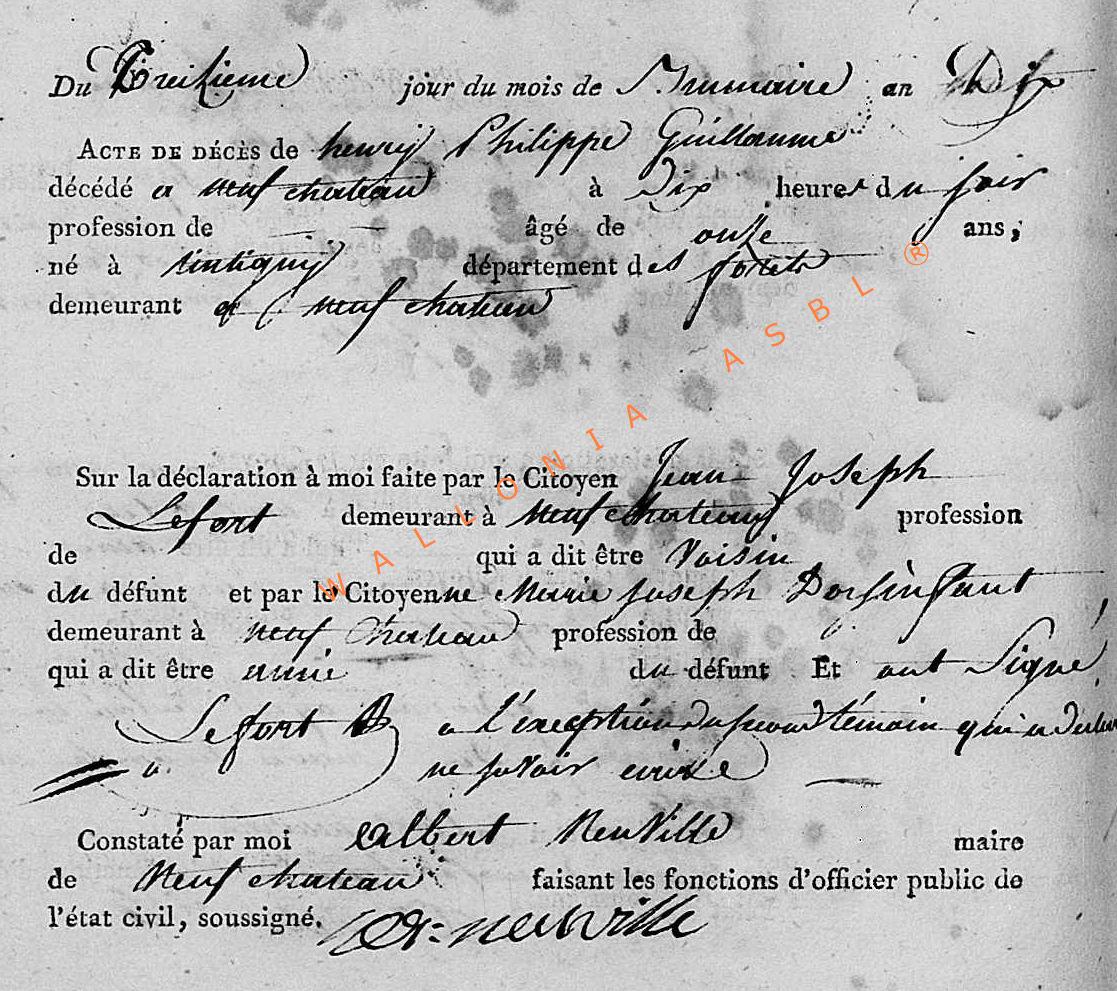 Du Treizieme jour du mois de Brumaire an Dix
ACTE DE DÉCÈS de henry Philippe Guillaume
décédé a neufchateau à Dix heures du soir
profession de — âgé de onze ans;
né à tintigny département des forets
demeurant a neufchateau
Sur la déclaration à moi faite par le Citoyen Jean Joseph
Lefort demeurant à neufchateau profession
de qui a dit être Voisin
du défunt et par le Citoyenne Marie Joseph
demeurant à neuf Chateau profession de
qui a dit être amie du défunt Et ont Signé
Lefort a l'exception du second témoin qui a declaré
ne savoir ecrire
Constaté par moi Albert NeuVille maire
de Neufchateau faisant les fonctions d'officier public de
l'état civil, soussigné. neuville
WALLONIA ASBL ®